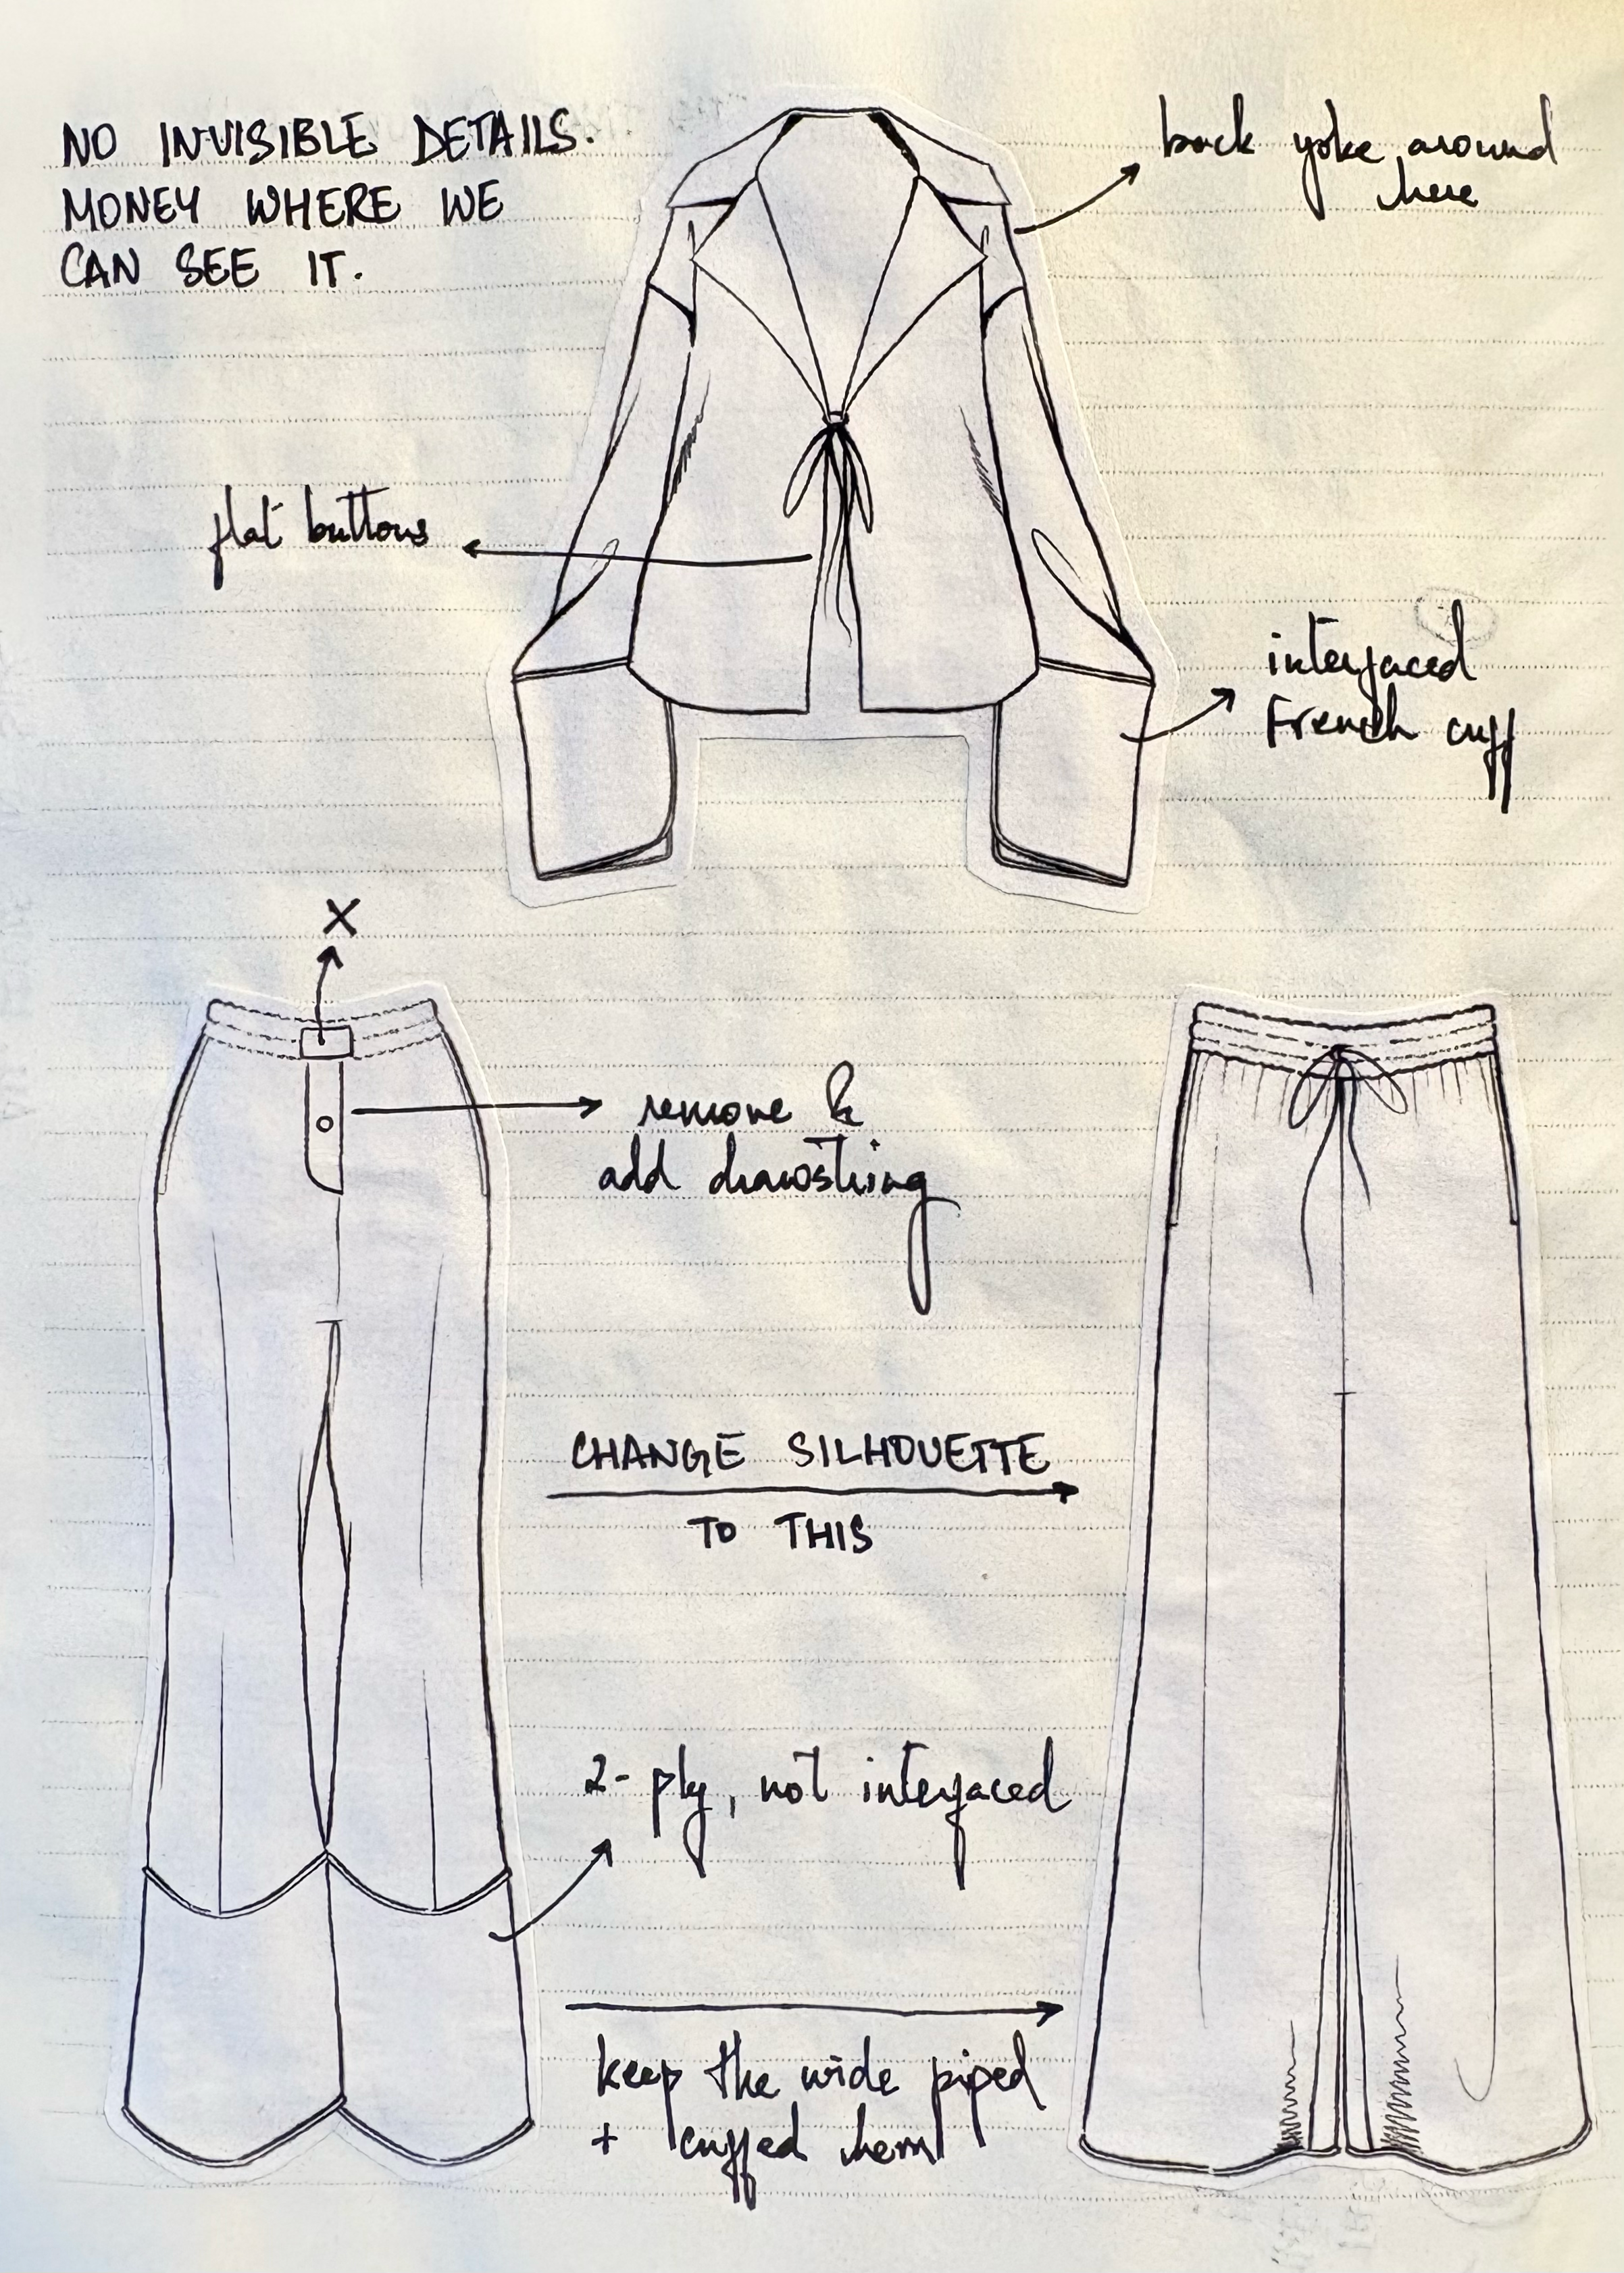 NO INVISIBLE DETAILS.
MONEY WHERE WE
CAN SEE IT.
back yoke around
here
flat buttons
interfaced
French cuff
X
remove &
add drawstring
CHANGE SILHOUETTE
TO THIS
2-ply, not interfaced
keep the wide piped
+ cuffed hem